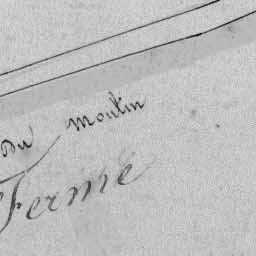 du moulin
Ferme